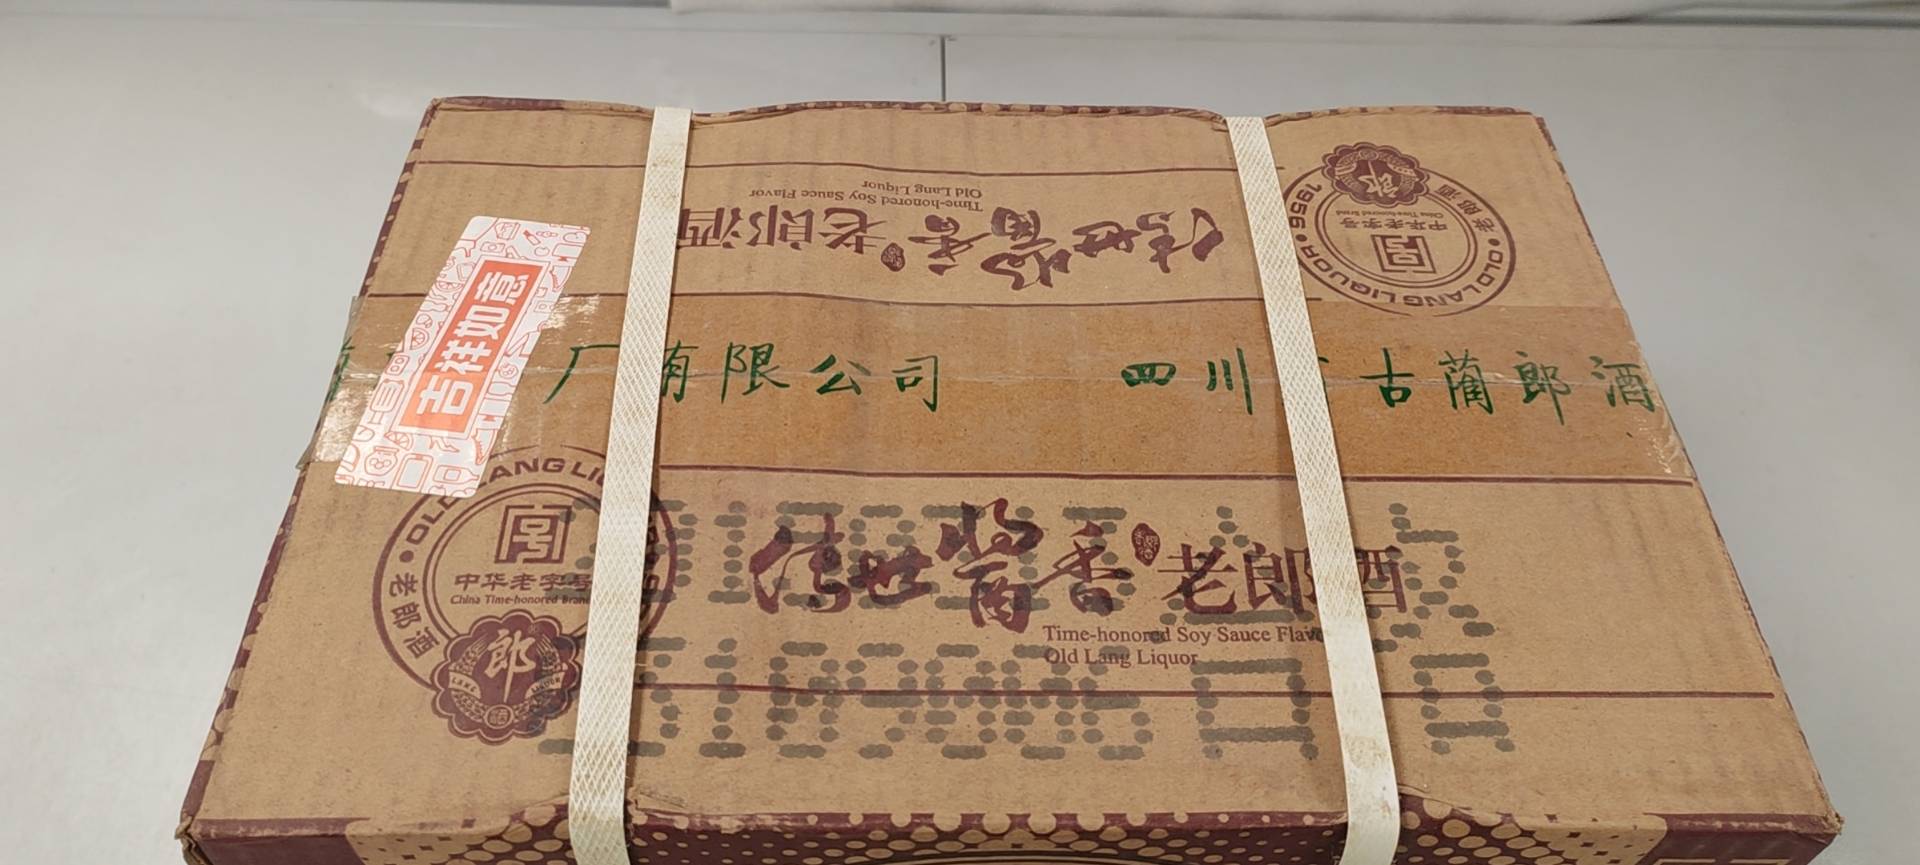 Old Lang Liquor
Time-honored Soy Sauce Flavor
传世酱香老郎酒
老郎酒
1956
OLD LANG LIQUOR
中华老字号
China Time-honored Brand
郎
吉祥如意
厂有限公司
四川 古蔺郎酒
ANG LI
中华老字号
China Time-honored Bran
老郎酒
郎
LANG
LIQUOR
传世醬香老郎酒
Time-honored Soy Sauce Flav
Old Lang Liquor